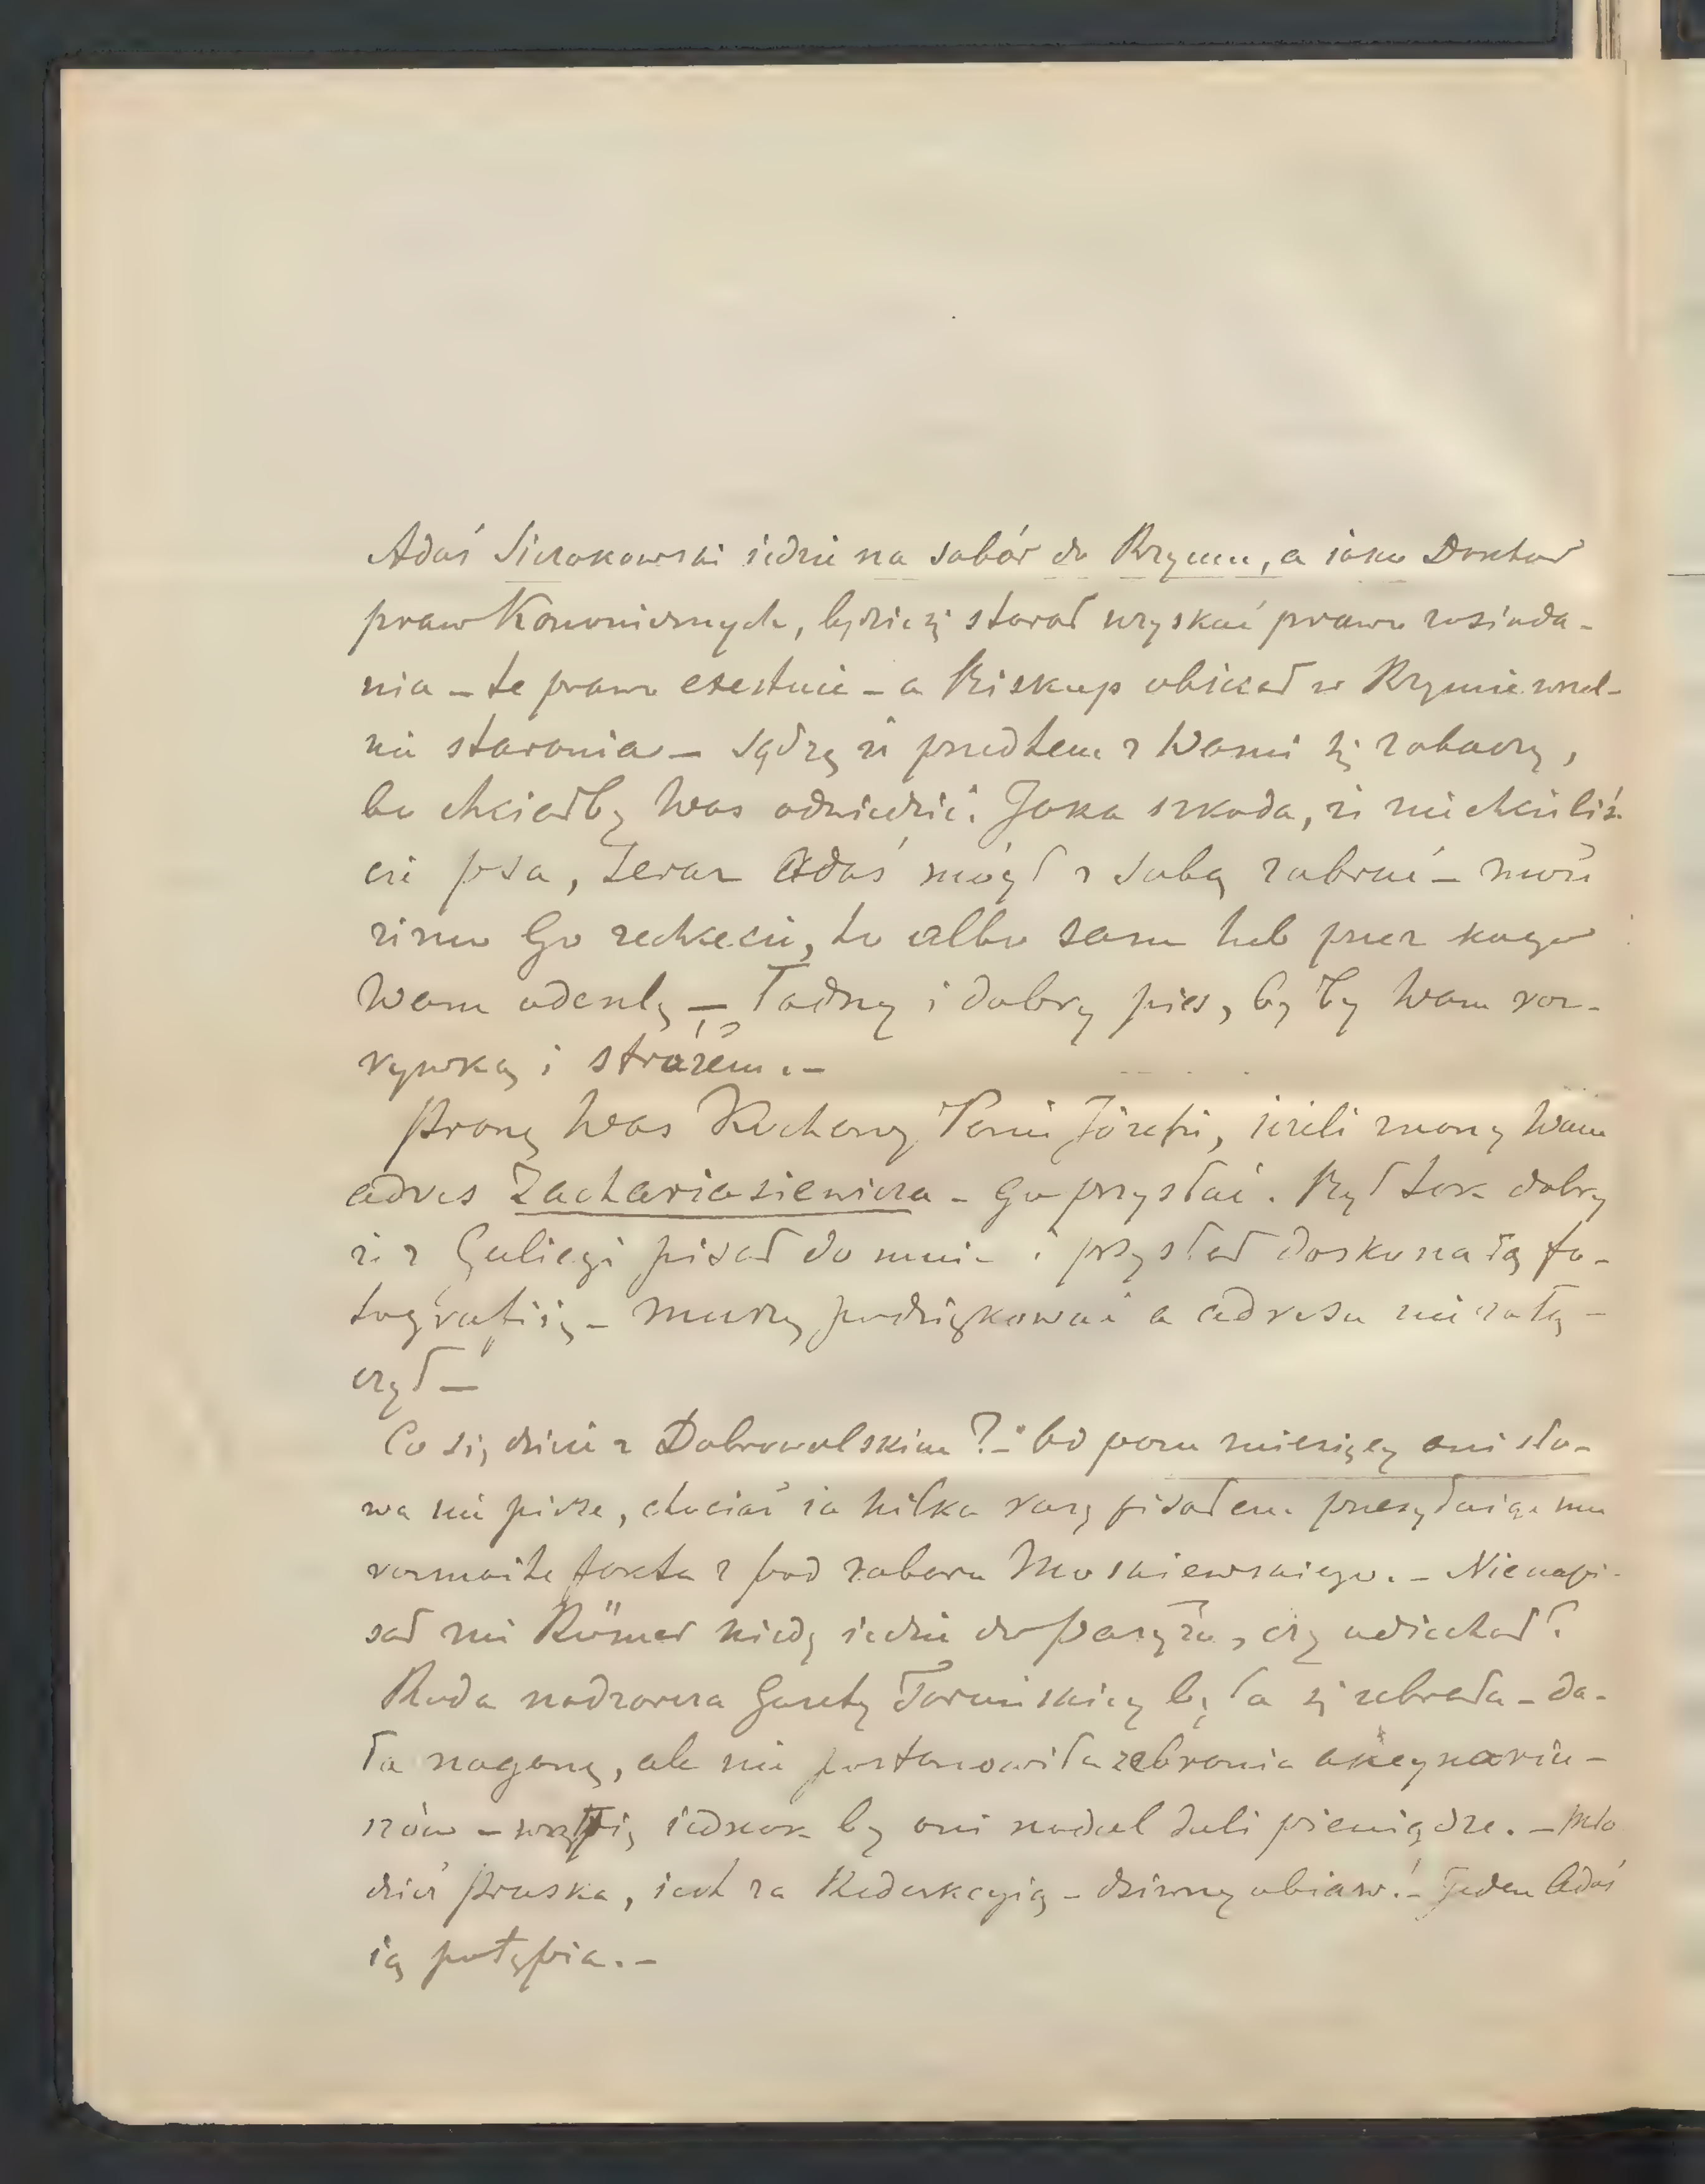 Adaś Sierakowski iedzie na sobór do Rzymu, a iako Doktor
praw Kanonicznych, będzie się starał uzyskać prawo zasiada-
nia – te prawo exestuie – a Biskup obiecał w Rzymie wszel-
kie starania – sądzę że przedtem z Wami się zobaczy,
bo chciałby Was odwiedzić. Jaka szkoda, że niechcieliś-
cie psa, teraz Adaś mógł z sobą zabrać –
Go zechcecie, to albo sam lub przez kogo
Wam odeszlę – Ładny i dobry pies, był by Wam roz-
rywką i stróżem. –
Proszę Was Kochany Panie Józefie, ieżeli znany Wam
adres Zachariasiewicza – go przysłać. Był tak dobry
że z Galicyi pisał do mnie i przysłał doskonałą fo-
tografiię – muszę podziękować a adresu nie załą-
czył –
Co się dzieie z Dobrowolskim? – bo paru miesięcy ani sło-
wa nie pisze, chociaż ia kilka razy pisałem przesyłaiąc mu
rozmaite fakta z pod zaboru Moskiewskiego. – Nienapi-
sał mi Römer kiedy iedzie do Paryża, czy odiechał?
Rada nadzorcza Gazety Toruńskiey była się zebrała – da-
ła naganę, ale nie postanowiła zebrania akcynariu-
szów – wątpię iednak by oni nadal dali pieniądze. – Mło
dzież Pruska, iest za Redakcyią – dziwny obiaw! – Jeden Adaś
ią potępia. –